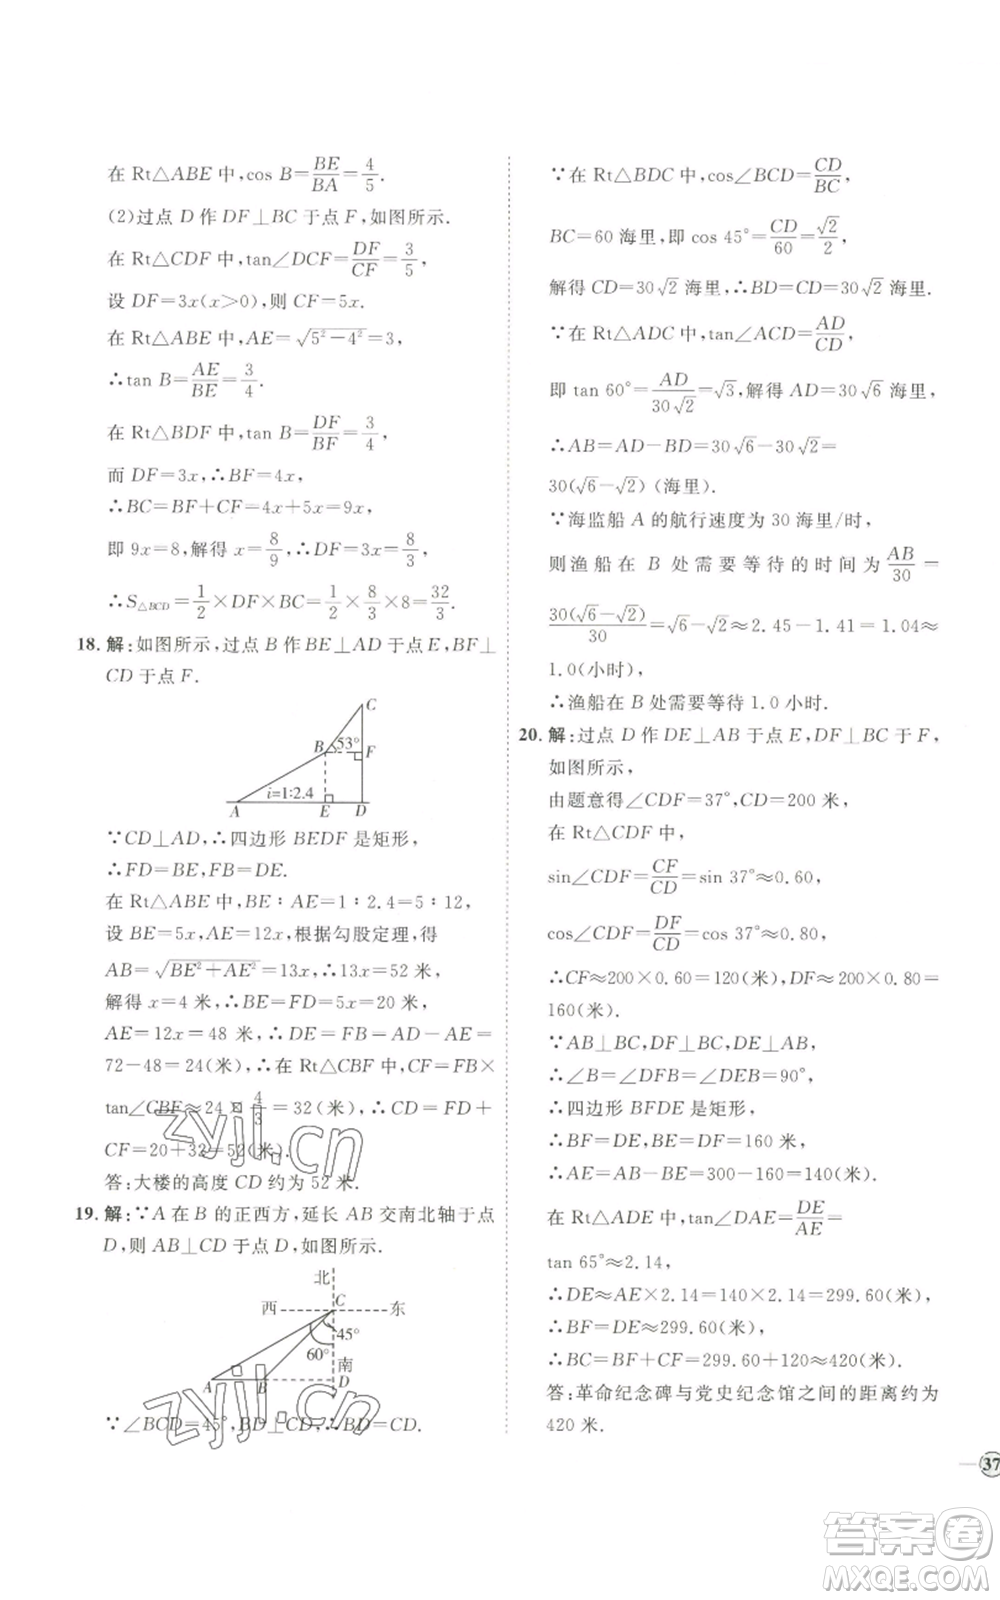 在 Rt△ABE 中,cos B=BE/BA=4/5.
(2)过点 D 作 DF⊥BC 于点 F,如图所示.
在 Rt△CDF 中,tan∠DCF=DF/CF=3/5,
设 DF=3x(x>0),则 CF=5x.
在 Rt△ABE 中,AE=√(5²-4²)=3,
∴tan B=AE/BE=3/4.
在 Rt△BDF 中,tan B=DF/BF=3/4,
而 DF=3x,∴BF=4x,
∴BC=BF+CF=4x+5x=9x,
即 9x=8,解得 x=8/9,∴DF=3x=8/3,
∴S△BCD=1/2×DF×BC=1/2×8/3×8=32/3.
18.解:如图所示,过点 B 作 BE⊥AD 于点 E,BF⊥
CD 于点 F.
C
B 53° F
i=1∶2.4
A E D
∵CD⊥AD,∴四边形 BEDF 是矩形,
∴FD=BE,FB=DE.
在 Rt△ABE 中,BE∶AE=1∶2.4=5∶12,
设 BE=5x,AE=12x,根据勾股定理,得
AB=√(BE²+AE²)=13x,∴13x=52 米,
解得 x=4 米,∴BE=FD=5x=20 米,
AE=12x=48 米,∴DE=FB=AD-AE=
72-48=24(米),∴在 Rt△CBF 中,CF=FB×
tan∠CBF≈24×4/3=32(米),∴CD=FD+
CF=20+32=52(米).
答:大楼的高度 CD 约为 52 米.
19.解:∵A 在 B 的正西方,延长 AB 交南北轴于点
D,则 AB⊥CD 于点 D,如图所示.
北
西 C 东
45°
60° 南
A B D
∵∠BCD=45°,BD⊥CD,∴BD=CD.
∵在 Rt△BDC 中,cos∠BCD=CD/BC,
BC=60 海里,即 cos 45°=CD/60=√2/2,
解得 CD=30√2 海里,∴BD=CD=30√2 海里.
∵在 Rt△ADC 中,tan∠ACD=AD/CD,
即 tan 60°=AD/30√2=√3,解得 AD=30√6 海里,
∴AB=AD-BD=30√6-30√2=
30(√6-√2)(海里).
∵海监船 A 的航行速度为 30 海里/时,
则渔船在 B 处需要等待的时间为 AB/30=
30(√6-√2)/30=√6-√2≈2.45-1.41=1.04≈
1.0(小时),
∴渔船在 B 处需要等待 1.0 小时.
20.解:过点 D 作 DE⊥AB 于点 E,DF⊥BC 于 F,
如图所示,
由题意得∠CDF=37°,CD=200 米,
在 Rt△CDF 中,
sin∠CDF=CF/CD=sin 37°≈0.60,
cos∠CDF=DF/CD=cos 37°≈0.80,
∴CF≈200×0.60=120(米),DF≈200×0.80=
160(米).
∵AB⊥BC,DF⊥BC,DE⊥AB,
∴∠B=∠DFB=∠DEB=90°,
∴四边形 BFDE 是矩形,
∴BF=DE,BE=DF=160 米,
∴AE=AB-BE=300-160=140(米).
在 Rt△ADE 中,tan∠DAE=DE/AE=
tan 65°≈2.14,
∴DE≈AE×2.14=140×2.14=299.60(米),
∴BF=DE≈299.60(米),
∴BC=BF+CF=299.60+120≈420(米).
答:革命纪念碑与党史纪念馆之间的距离约为
420 米.
37
zyjl.cn
zyjl.cn
答案卷
MXQE.COM